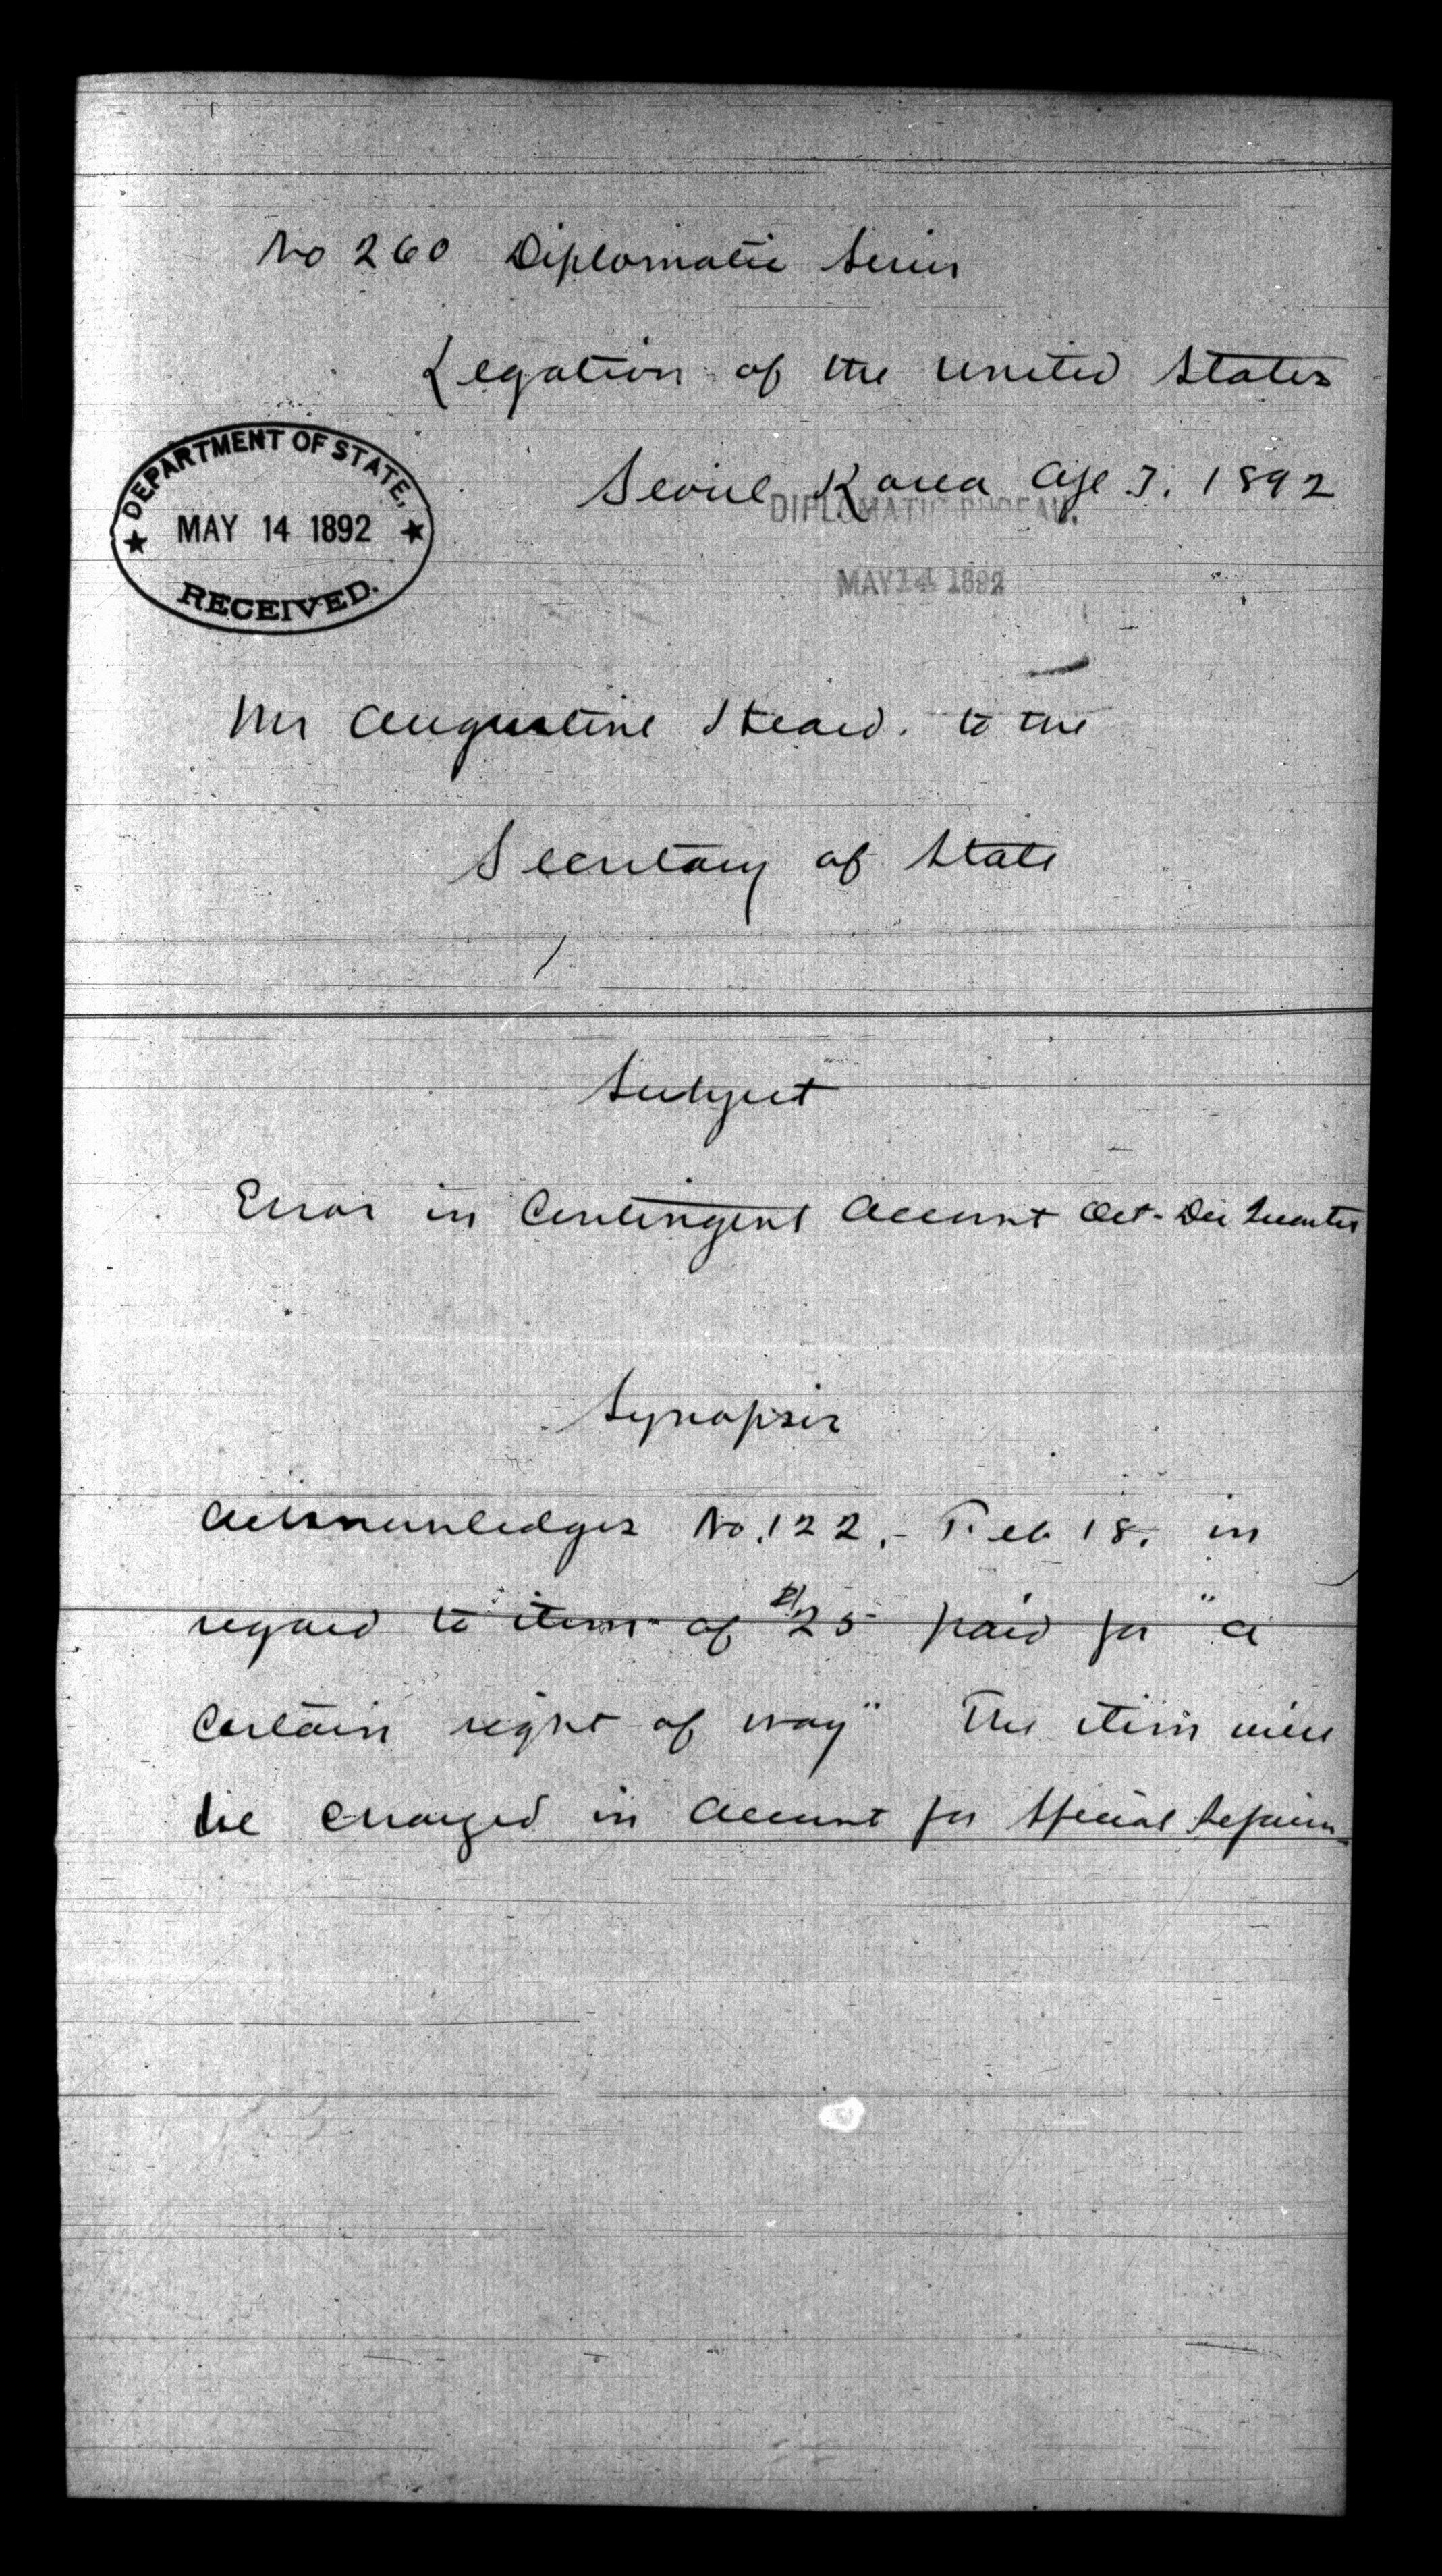 No 260 Diplomatic Series
Legation of the United States
Seoul Korea Apl 7. 1892
DEPARTMENT OF STATE,
MAY 14 1892
RECEIVED.
DIPLOMATIC BUREAU.
MAY 14 1892
Mr Augustine Heard. to the
Secretary of State
Subject
Error in Contingent Account Oct-Dec Quarter
Synopsis
Acknowledges No. 122, - Feb 18. in
regard to item of $25 paid for "a
certain right of way" The item will
be charged in Account for Special Repairs